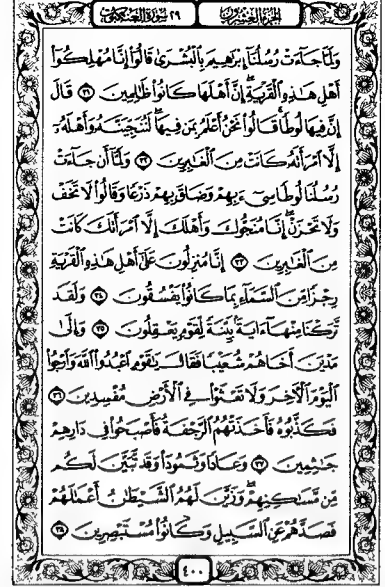 الجزء العشرون ٢٩ سورة العنكبوت
وَلَمَّا جَآءَتْ رُسُلُنَآ إِبْرَٰهِيمَ بِٱلْبُشْرَىٰ قَالُوٓا۟ إِنَّا مُهْلِكُوٓا۟
أَهْلِ هَٰذِهِ ٱلْقَرْيَةِ ۖ إِنَّ أَهْلَهَا كَانُوا۟ ظَٰلِمِينَ ٣١ قَالَ
إِنَّ فِيهَا لُوطًا ۚ قَالُوا۟ نَحْنُ أَعْلَمُ بِمَن فِيهَا ۖ لَنُنَجِّيَنَّهُۥ وَأَهْلَهُۥٓ
إِلَّا ٱمْرَأَتَهُۥ كَانَتْ مِنَ ٱلْغَٰبِرِينَ ٣٢ وَلَمَّآ أَن جَآءَتْ
رُسُلُنَا لُوطًا سِىٓءَ بِهِمْ وَضَاقَ بِهِمْ ذَرْعًا وَقَالُوا۟ لَا تَخَفْ
وَلَا تَحْزَنْ ۖ إِنَّا مُنَجُّوكَ وَأَهْلَكَ إِلَّا ٱمْرَأَتَكَ كَانَتْ
مِنَ ٱلْغَٰبِرِينَ ٣٣ إِنَّا مُنزِلُونَ عَلَىٰٓ أَهْلِ هَٰذِهِ ٱلْقَرْيَةِ
رِجْزًا مِّنَ ٱلسَّمَآءِ بِمَا كَانُوا۟ يَفْسُقُونَ ٣٤ وَلَقَد
تَّرَكْنَا مِنْهَآ ءَايَةًۢ بَيِّنَةً لِّقَوْمٍ يَعْقِلُونَ ٣٥ وَإِلَىٰ
مَدْيَنَ أَخَاهُمْ شُعَيْبًا فَقَالَ يَٰقَوْمِ ٱعْبُدُوا۟ ٱللَّهَ وَٱرْجُوا۟
ٱلْيَوْمَ ٱلْءَاخِرَ وَلَا تَعْثَوْا۟ فِى ٱلْأَرْضِ مُفْسِدِينَ ٣٦
فَكَذَّبُوهُ فَأَخَذَتْهُمُ ٱلرَّجْفَةُ فَأَصْبَحُوا۟ فِى دَارِهِمْ
جَٰثِمِينَ ٣٧ وَعَادًا وَثَمُودَا۟ وَقَد تَّبَيَّنَ لَكُم
مِّن مَّسَٰكِنِهِمْ ۖ وَزَيَّنَ لَهُمُ ٱلشَّيْطَٰنُ أَعْمَٰلَهُمْ
فَصَدَّهُمْ عَنِ ٱلسَّبِيلِ وَكَانُوا۟ مُسْتَبْصِرِينَ ٣٨
٤٠٠